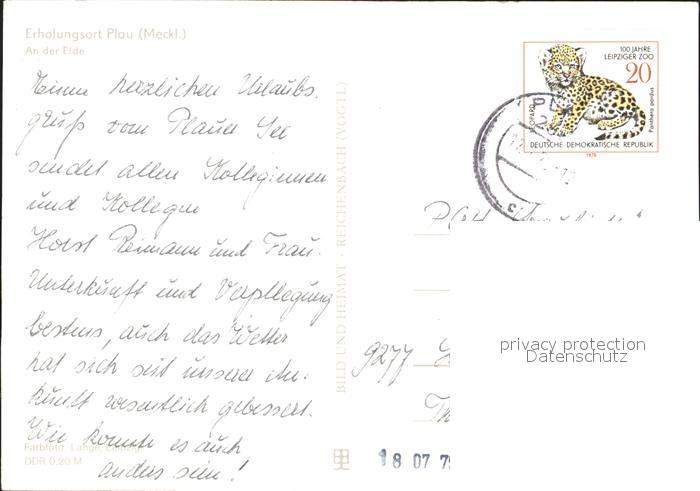 Erholungsort Plau (Meckl.)
An der Elde
Einen herzlichen Urlaubs-
gruß vom Plauer See
sendet allen Kolleginnen
und Kollegen
Horst Reimann und Frau.
Unterkunft und Verpflegung
bestens, auch das Wetter
hat sich seit unserer An-
kunft wesentlich gebessert.
Wie konnte es auch
anders sein!
Farbfoto: Lange, Leipzig
DDR 0,20 M
BILD UND HEIMAT · REICHENBACH (VOGTL)
100 JAHRE
LEIPZIGER ZOO
20
LEOPARD
Panthera pardus
DEUTSCHE DEMOKRATISCHE REPUBLIK
1978
PLAU
9277
18 07 79
privacy protection
Datenschutz